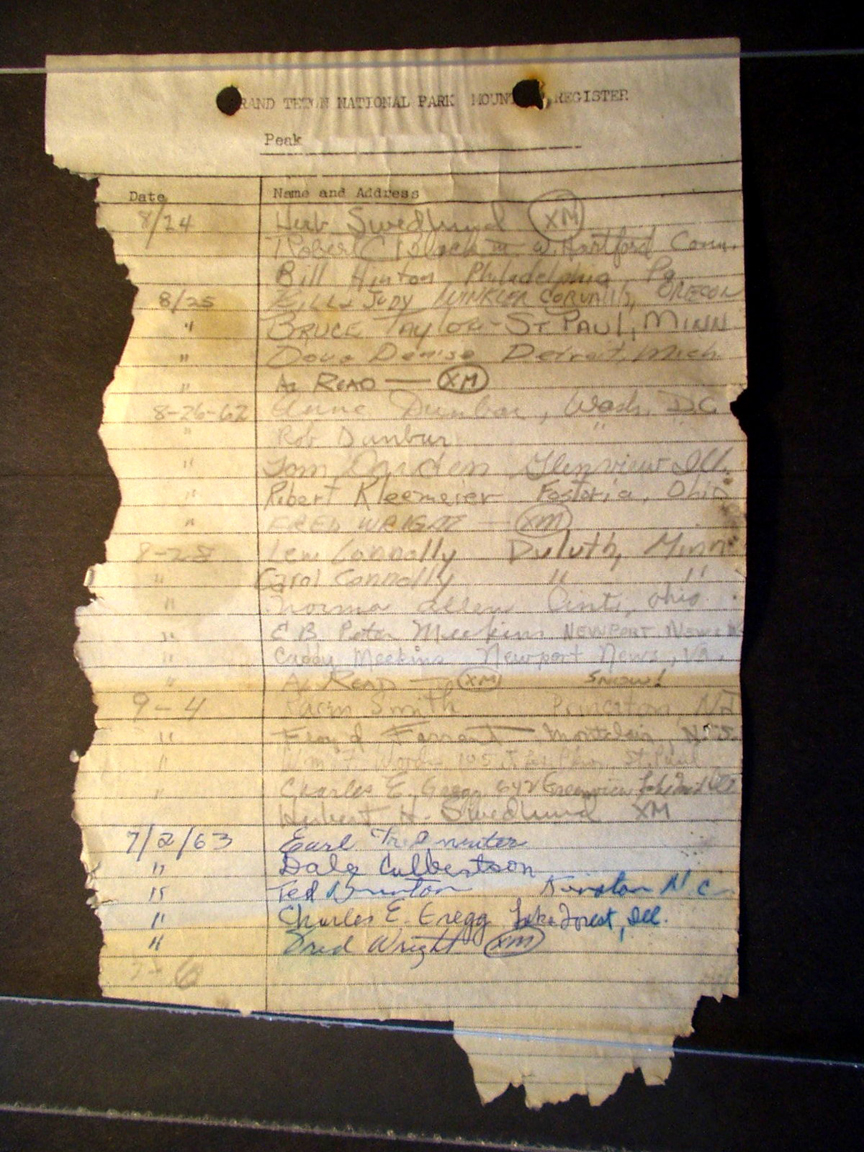 RAND TETON NATIONAL PARK MOUN REGISTER
Peak
Date Name and Address
8/24 Herb Swedlund XM
Robert C W. Hartford Conn.
Bill Hinton Philadelphia Pa
8/25 BILL & JUDY WINKLER CORVALLIS, OREGON
" BRUCE TAYLOR - ST PAUL, MINN
" Doug Denise Detroit, Mich
" AL READ — XM
8-26-62 Anne Dunbar, Wash. D.C
" Rob Dunbar "
" Tom Darden Glenview Ill.
" Robert Kleemeier Fostoria, Ohio
" FRED WRIGHT — XM
8-28 Lew Connolly Duluth, Minn
" Carol Connolly " "
" Norma Allen Cinti, Ohio
" E B Peter Meekins NEWPORT NEWS
" Caddy Meekins Newport News, Va.
" AL READ — XM SNOW!
9-4 Karen Smith Princeton, NJ
" Farrant — Montclair, N.J.
" St. Paul
" Charles E. Gregg 642 Greenview Lake Forest Ill
Herbert H. Swedlund XM
7/2/63 Earl
" Dale Culbertson
" Ted Kinston N.C.
" Charles E. Gregg Lake Forest, Ill.
" Fred Wright XM
7-6